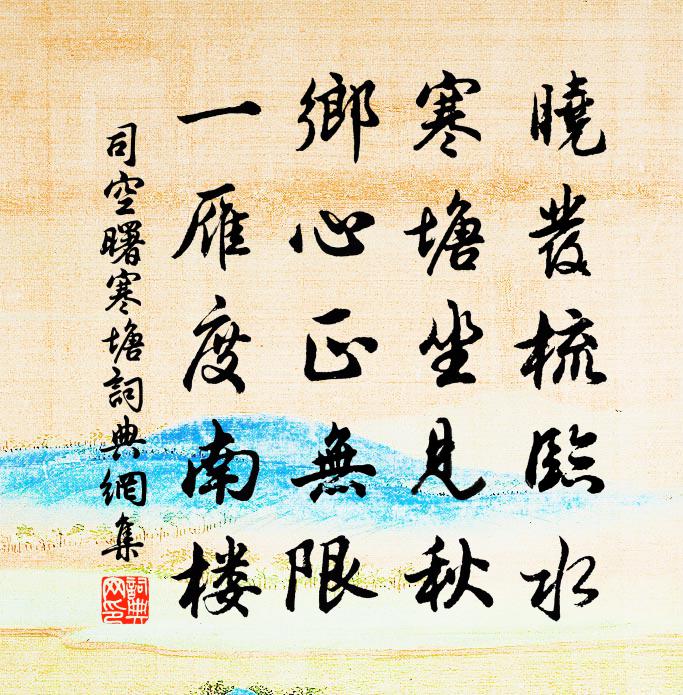 曉發梳臨水
寒塘坐見秋
鄉心正無限
一雁度南楼
司空曙寒塘詞典網集
詞典
网印